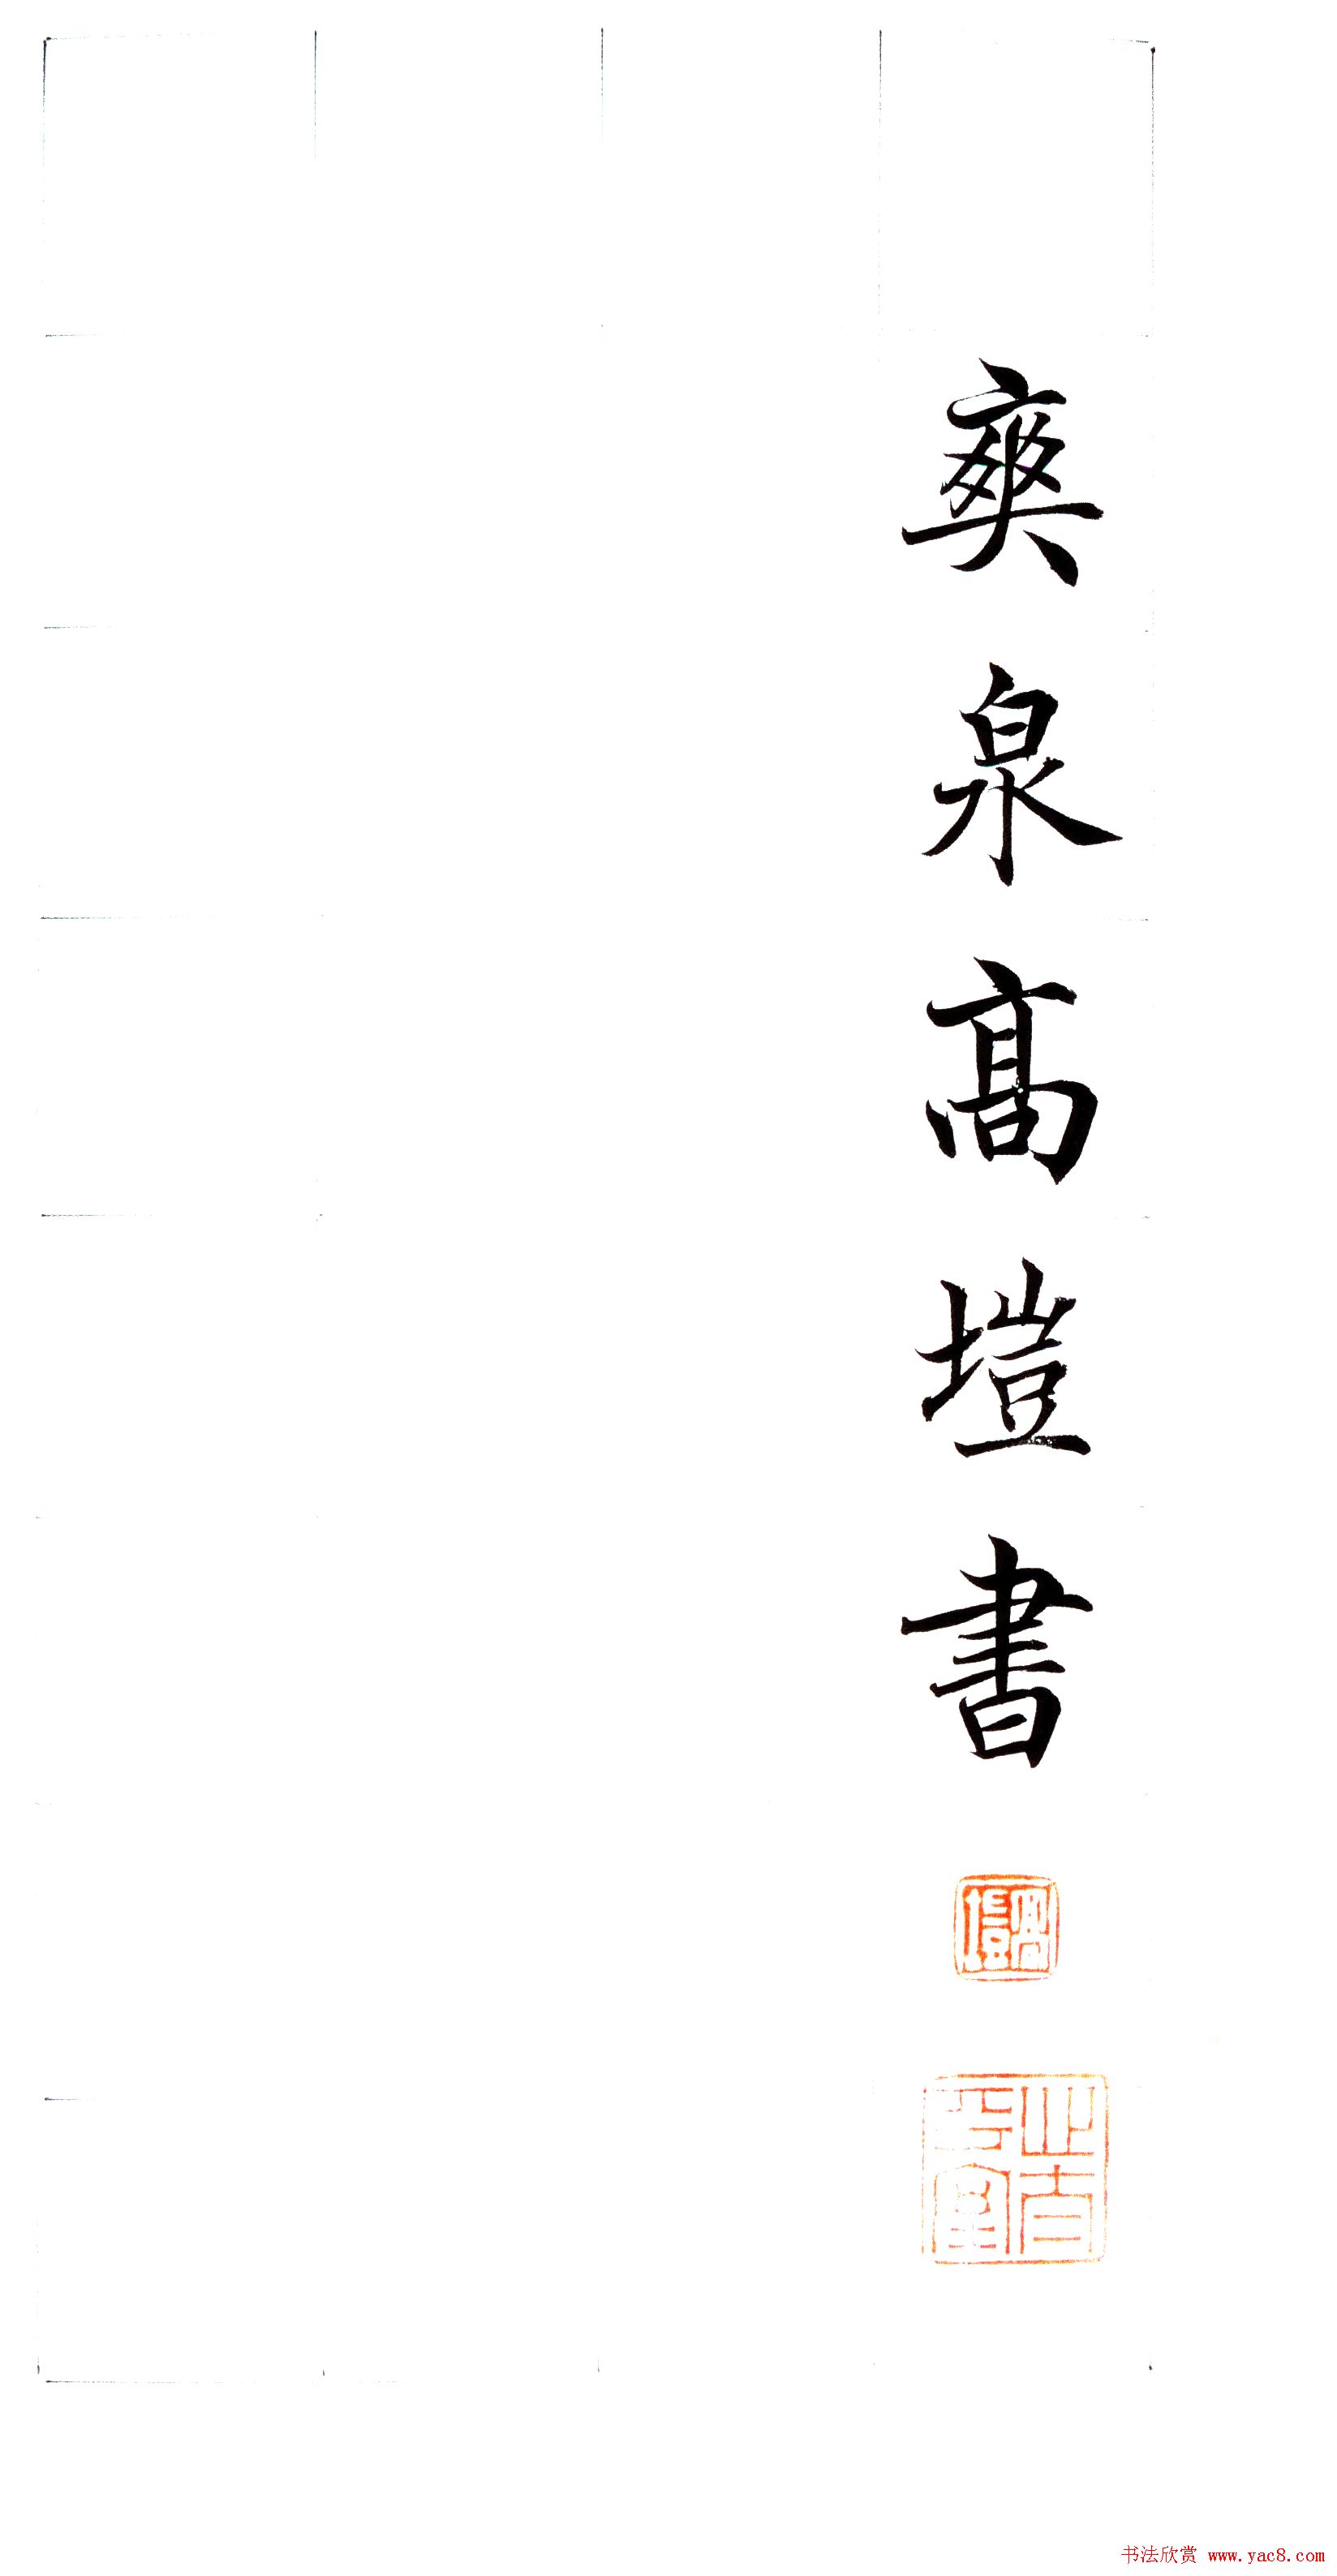 爽泉高塏書
高塏
书法欣赏 www.yac8.com